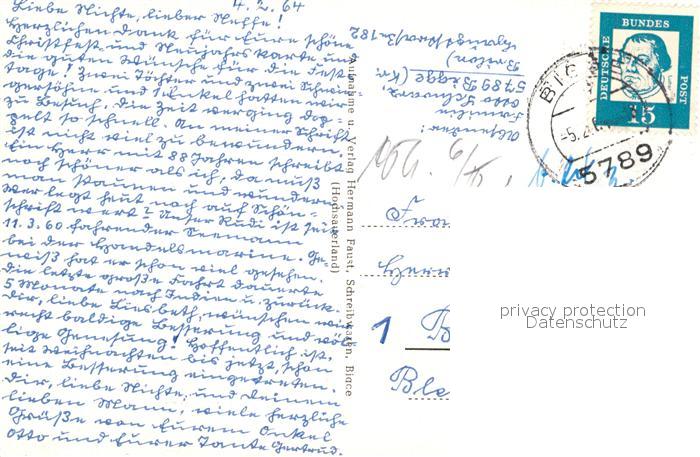 4.2.64
Liebe Nichte, lieber Neffe!
Herzlichen Dank für Eure schöne
Christfest- und Neujahrskarte und
die guten Wünsche für die Fest-
tage! Zwei Töchter und zwei Schwie-
gersöhne und 1 Enkel hatten wir
zu Besuch, die Zeit verging dop-
pelt so schnell. An meiner Schrift
ist nicht viel zu bewundern.
Ein Herr mit 88 Jahren schreibt
noch schöner als ich, da muß
man staunen und wundern.
Wer legt heut noch auf Schön-
schrift wert? Unser Rudi ist seit
11.3.60 fahrender Seemann
bei der Handelsmarine. Ge-
weiß hat er schon viel gesehen.
Die letzte große Fahrt dauerte
5 Monate nach Indien u. zurück.
Dir, liebe Liesbeth, wünschen wir
recht baldige Besserung und völ-
lige Genesung! Hoffentlich ist
seit Weihnachten bis jetzt, schon
eine Besserung eingetreten.
Dir, liebe Nichte, und Deinem
lieben Mann, viele herzliche
Grüße von Eurem Onkel
Otto und Eurer Tante Gertrud.
Aufnahme u. Verlag Hermann Faust, Schreibwaren, Bigge
(Hochsauerland)
Absender:
Familie
Otto Schwarz
5789 Bigge (Kr.
Brilon)
182
DEUTSCHE
BUNDES
POST
15
BIGGE
-5.2.6
5789
Frau
1 B
Ble
privacy protection
Datenschutz